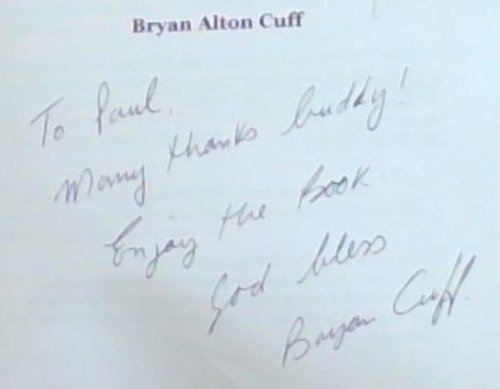 Bryan Alton Cuff
To Paul.
Many thanks buddy!
Enjoy the Book
God bless
Bryan Cuff.